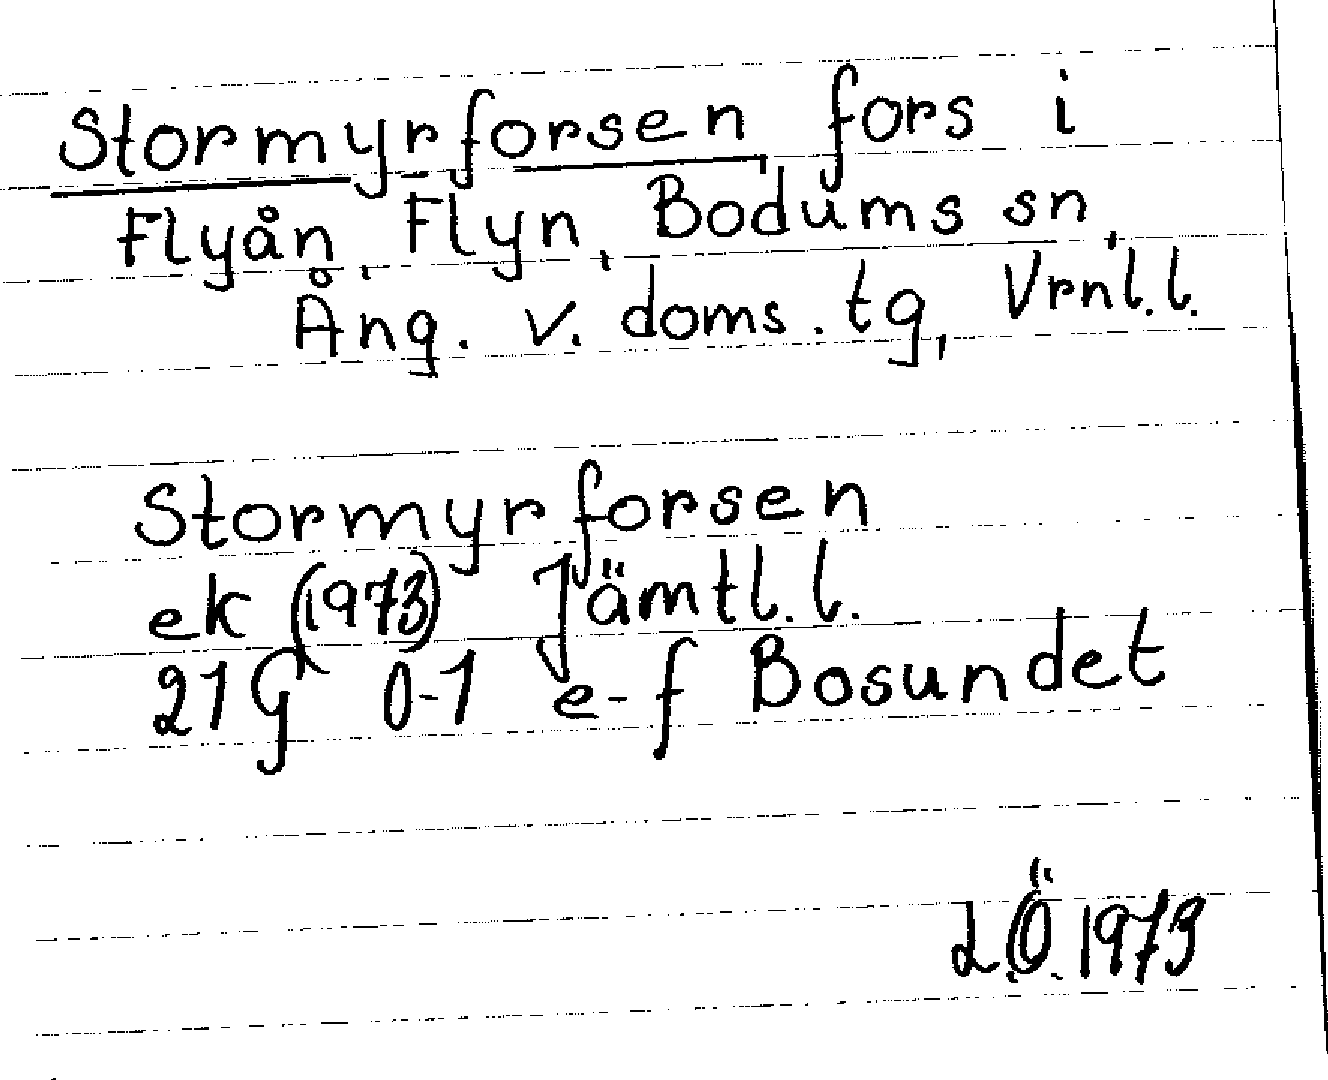 Stormyrforsen, fors i
Flyån, Flyn, Bodums sn,
Ång. v. doms. tg, Vrnl. l.
Stormyrforsen
ek (1973) Jämtl. l.
21 G 0-1 e-f Bosundet
L.Ö. 1979